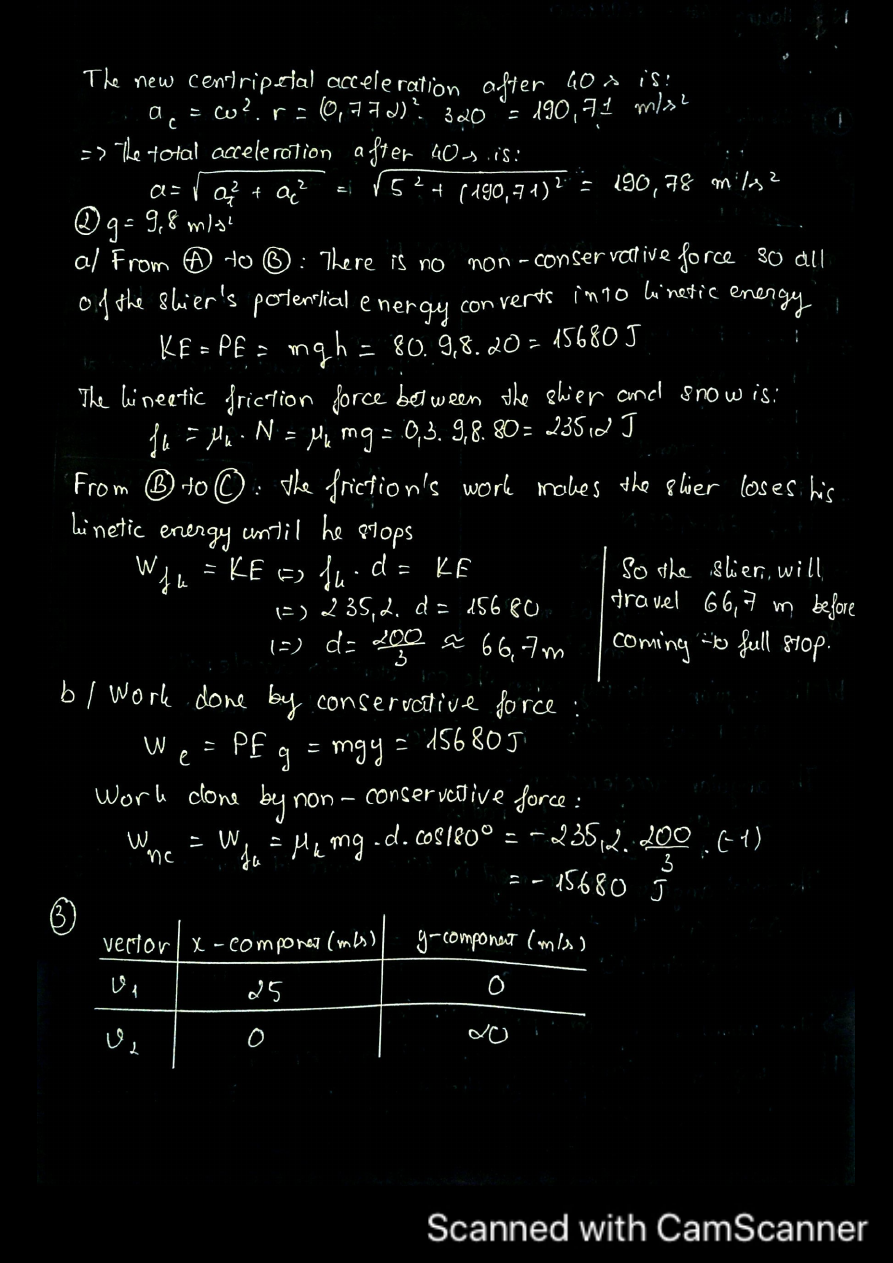 The new centripetal acceleration after 40 s is:
a_c = ω². r = (0,772)². 320 = 190,71 m/s²
=> The total acceleration after 40 s is:
a = √(a_T² + a_c²) = √(5² + (190,71)²) = 190,78 m/s²
② g = 9,8 m/s²
a/ From Ⓐ to Ⓑ : There is no non-conservative force so all
of the skier's potential energy converts into kinetic energy
KE = PE = mgh = 80. 9,8. 20 = 15680 J
The kineetic friction force between the skier and snow is:
f_k = μ_k . N = μ_k mg = 0,3. 9,8. 80 = 235,2 J
From Ⓑ to Ⓒ : the friction's work makes the skier loses his
kinetic energy until he stops
W_fk = KE <=> f_k . d = KE
<=> 235,2. d = 15680
<=> d = 200/3 ≈ 66,7m
So the skier, will
travel 66,7 m before
coming to full stop.
b/ Work done by conservative force :
W_c = PE_g = mgy = 15680 J
Work done by non-conservative force :
W_nc = W_fk = μ_k mg .d. cos180° = - 235,2. 200/3 . (-1)
= - 15680 J
③
vector | x-componet (m/s) | y-component (m/s)
v₁ | 25 | 0
v₂ | 0 | 20
Scanned with CamScanner